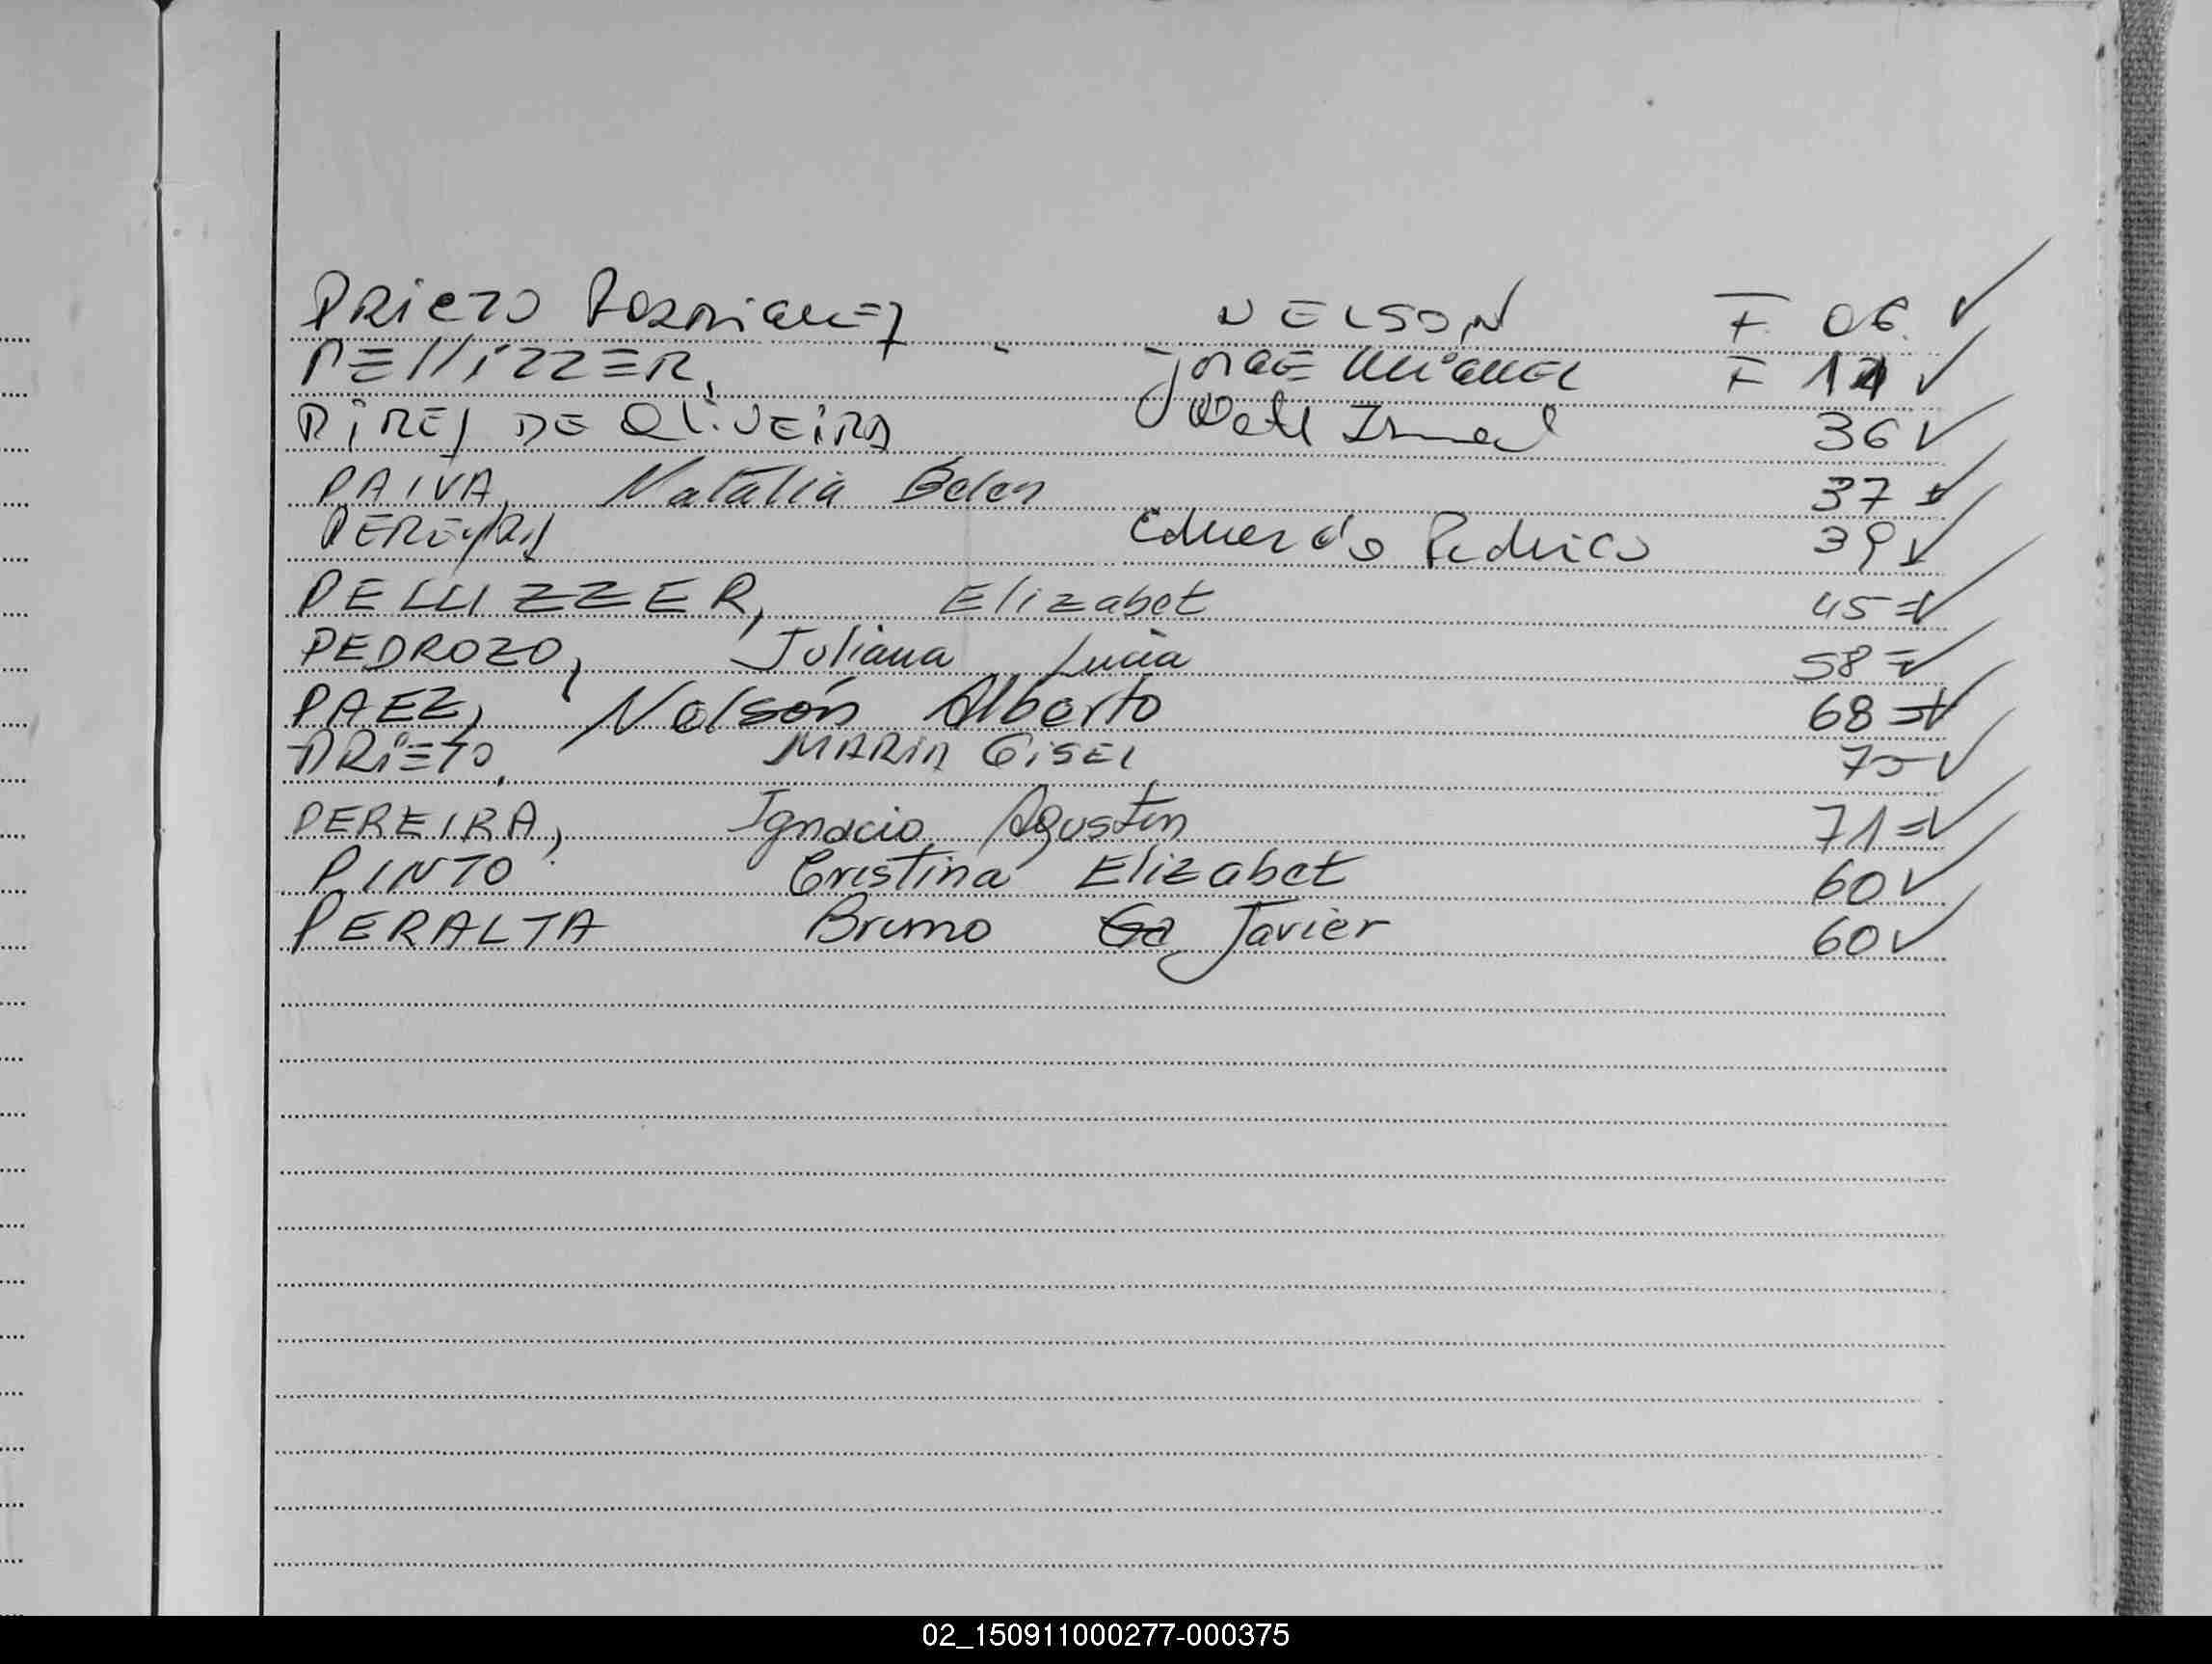 PRIETO RODRIGUEZ NELSON F 06 ✓
PELLIZZER, JORGE MIGUEL F 11 ✓
PIRES DE OLIVEIRA 36 ✓
PAIVA, Natalia Belen 37 ✓
PEREYRA Eduardo Federico 39 ✓
PELLIZZER, Elizabet 45 = ✓
PEDROZO, Juliana Lucia 58 = ✓
PAEZ, Nelsón Alberto 68 = ✓
PRIETO, MARIA GISEL 70 ✓
PEREIRA, Ignacio Agustin 71 = ✓
PINTO Cristina Elizabet 60 ✓
PERALTA Bruno Ga Javier 60 ✓
02_150911000277-000375